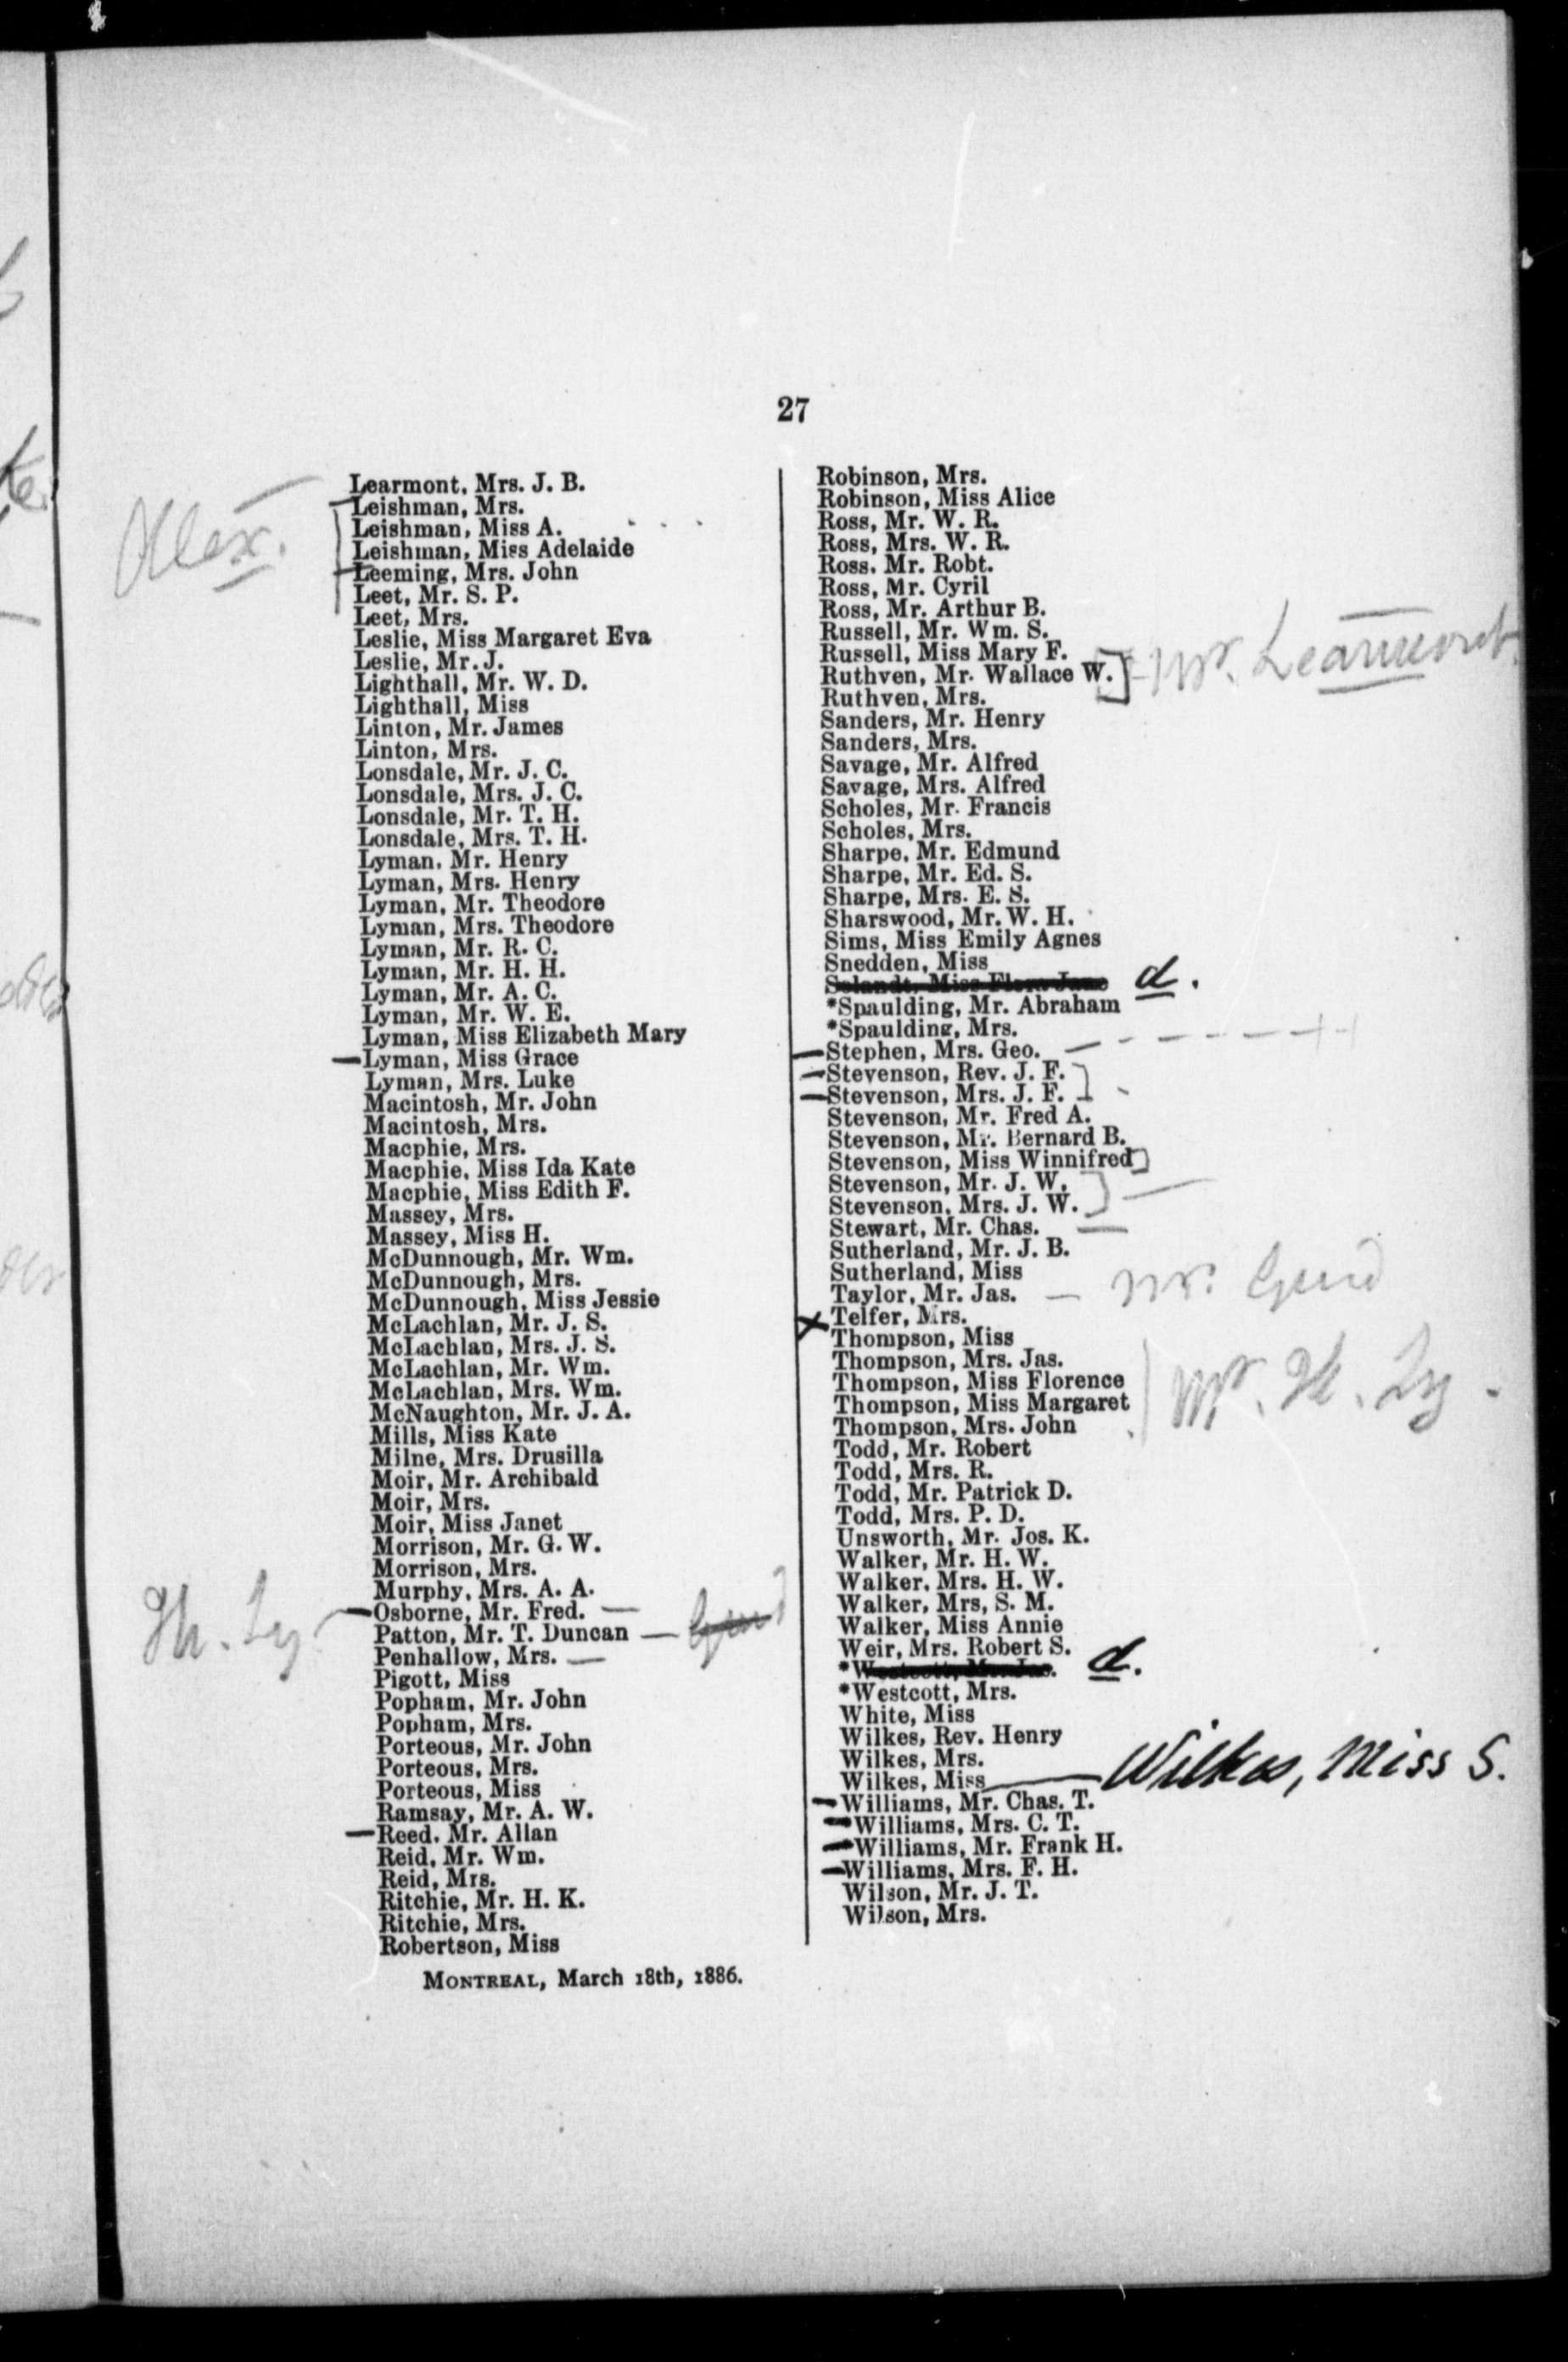 27
Learmont, Mrs. J. B.
Leishman, Mrs.
Leishman, Miss A.
Leishman, Miss Adelaide
Leeming, Mrs. John
Leet, Mr. S. P.
Leet, Mrs.
Leslie, Miss Margaret Eva
Leslie, Mr. J.
Lighthall, Mr. W. D.
Lighthall, Miss
Linton, Mr. James
Linton, Mrs.
Lonsdale, Mr. J. C.
Lonsdale, Mrs. J. C.
Lonsdale, Mr. T. H.
Lonsdale, Mrs. T. H.
Lyman, Mr. Henry
Lyman, Mrs. Henry
Lyman, Mr. Theodore
Lyman, Mrs. Theodore
Lyman, Mr. R. C.
Lyman, Mr. H. H.
Lyman, Mr. A. C.
Lyman, Mr. W. E.
Lyman, Miss Elizabeth Mary
Lyman, Miss Grace
Lyman, Mrs. Luke
Macintosh, Mr. John
Macintosh, Mrs.
Macphie, Mrs.
Macphie, Miss Ida Kate
Macphie, Miss Edith F.
Massey, Mrs.
Massey, Miss H.
McDunnough, Mr. Wm.
McDunnough, Mrs.
McDunnough, Miss Jessie
McLachlan, Mr. J. S.
McLachlan, Mrs. J. S.
McLachlan, Mr. Wm.
McLachlan, Mrs. Wm.
McNaughton, Mr. J. A.
Mills, Miss Kate
Milne, Mrs. Drusilla
Moir, Mr. Archibald
Moir, Mrs.
Moir, Miss Janet
Morrison, Mr. G. W.
Morrison, Mrs.
Murphy, Mrs. A. A.
Osborne, Mr. Fred.
Patton, Mr. T. Duncan
Penhallow, Mrs.
Pigott, Miss
Popham, Mr. John
Popham, Mrs.
Porteous, Mr. John
Porteous, Mrs.
Porteous, Miss
Ramsay, Mr. A. W.
Reed, Mr. Allan
Reid, Mr. Wm.
Reid, Mrs.
Ritchie, Mr. H. K.
Ritchie, Mrs.
Robertson, Miss
Alex.
Robinson, Mrs.
Robinson, Miss Alice
Ross, Mr. W. R.
Ross, Mrs. W. R.
Ross. Mr. Robt.
Ross, Mr. Cyril
Ross, Mr. Arthur B.
Russell, Mr. Wm. S.
Russell, Miss Mary F.
Ruthven, Mr. Wallace W.
Ruthven, Mrs.
Mr. Learmont
Sanders, Mr. Henry
Sanders, Mrs.
Savage, Mr. Alfred
Savage, Mrs. Alfred
Scholes, Mr. Francis
Scholes, Mrs.
Sharpe, Mr. Edmund
Sharpe, Mr. Ed. S.
Sharpe, Mrs. E. S.
Sharswood, Mr. W. H.
Sims, Miss Emily Agnes
Snedden, Miss
Solandt, Miss Flora Jane d.
*Spaulding, Mr. Abraham
*Spaulding, Mrs.
Stephen, Mrs. Geo.
Stevenson, Rev. J. F.
Stevenson, Mrs. J. F.
Stevenson, Mr. Fred A.
Stevenson, Mr. Bernard B.
Stevenson, Miss Winnifred
Stevenson, Mr. J. W.
Stevenson, Mrs. J. W.
Stewart, Mr. Chas.
Sutherland, Mr. J. B.
Sutherland, Miss
Taylor, Mr. Jas. — Mr. Gurd
Telfer, Mrs.
Thompson, Miss
Thompson, Mrs. Jas.
Thompson, Miss Florence
Thompson, Miss Margaret
Thompson, Mrs. John
Todd, Mr. Robert
Todd, Mrs. R.
Todd, Mr. Patrick D.
Todd, Mrs. P. D.
Unsworth, Mr. Jos. K.
Walker, Mr. H. W.
Walker, Mrs. H. W.
Walker, Mrs, S. M.
Walker, Miss Annie
Weir, Mrs. Robert S.
*Westcott, Mr. Jas. d.
*Westcott, Mrs.
White, Miss
Wilkes, Rev. Henry
Wilkes, Mrs.
Wilkes, Miss — Wilkes, Miss S.
Williams, Mr. Chas. T.
Williams, Mrs. C. T.
Williams, Mr. Frank H.
Williams, Mrs. F. H.
Wilson, Mr. J. T.
Wilson, Mrs.
MONTREAL, March 18th, 1886.